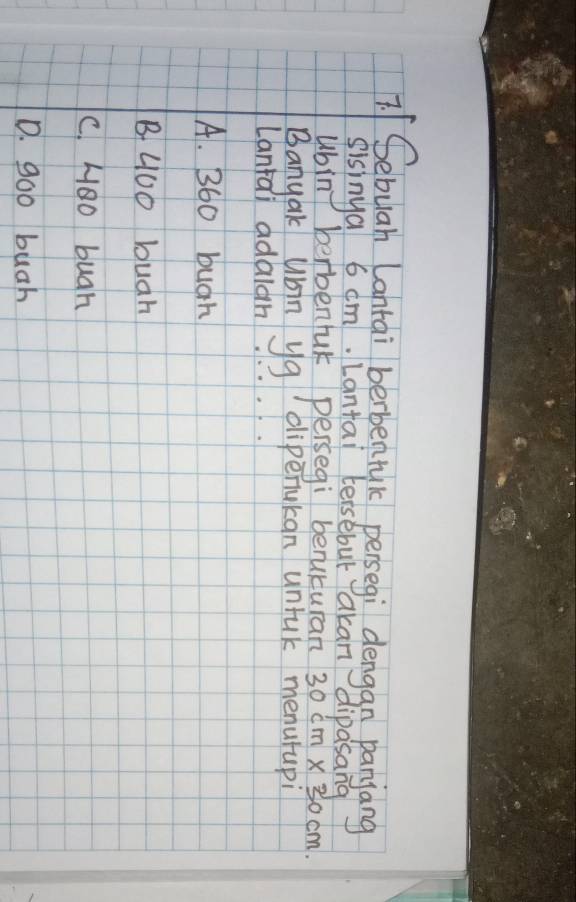 7. Sebuah Lantai berbentuk persegi dengan panjang
sisinya 6 cm. Lantai tersebut akan dipasang
ubin berbentuk persegi berukuran 30 cm x 30 cm.
Banyak ubin yg diperlukan untuk menutupi
Lantai adalah .....
A. 360 buah
B. 400 buah
C. 480 buah
D. 900 buah